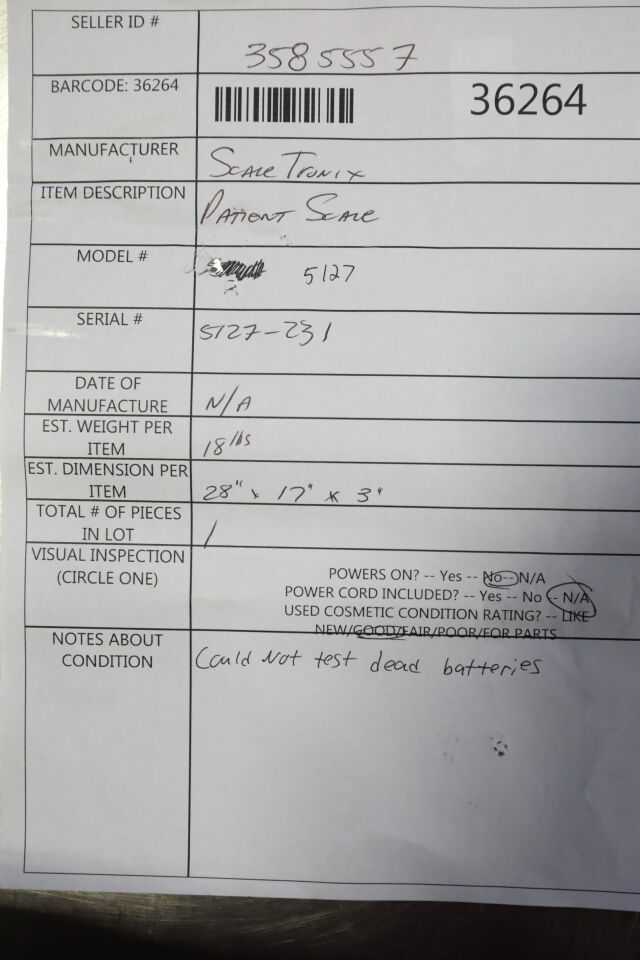 SELLER ID #
3585557
BARCODE: 36264
36264
MANUFACTURER
Scale Tronix
ITEM DESCRIPTION
Patient Scale
MODEL #
5127
SERIAL #
5127-231
DATE OF
MANUFACTURE
N/A
EST. WEIGHT PER
ITEM
18 lbs
EST. DIMENSION PER
ITEM
28" x 17" x 3"
TOTAL # OF PIECES
IN LOT
1
VISUAL INSPECTION
(CIRCLE ONE)
POWERS ON? -- Yes -- No-- N/A
POWER CORD INCLUDED? -- Yes -- No -- N/A
USED COSMETIC CONDITION RATING? -- LIKE
NEW/GOOD/FAIR/POOR/FOR PARTS
NOTES ABOUT
CONDITION
Could Not test dead batteries